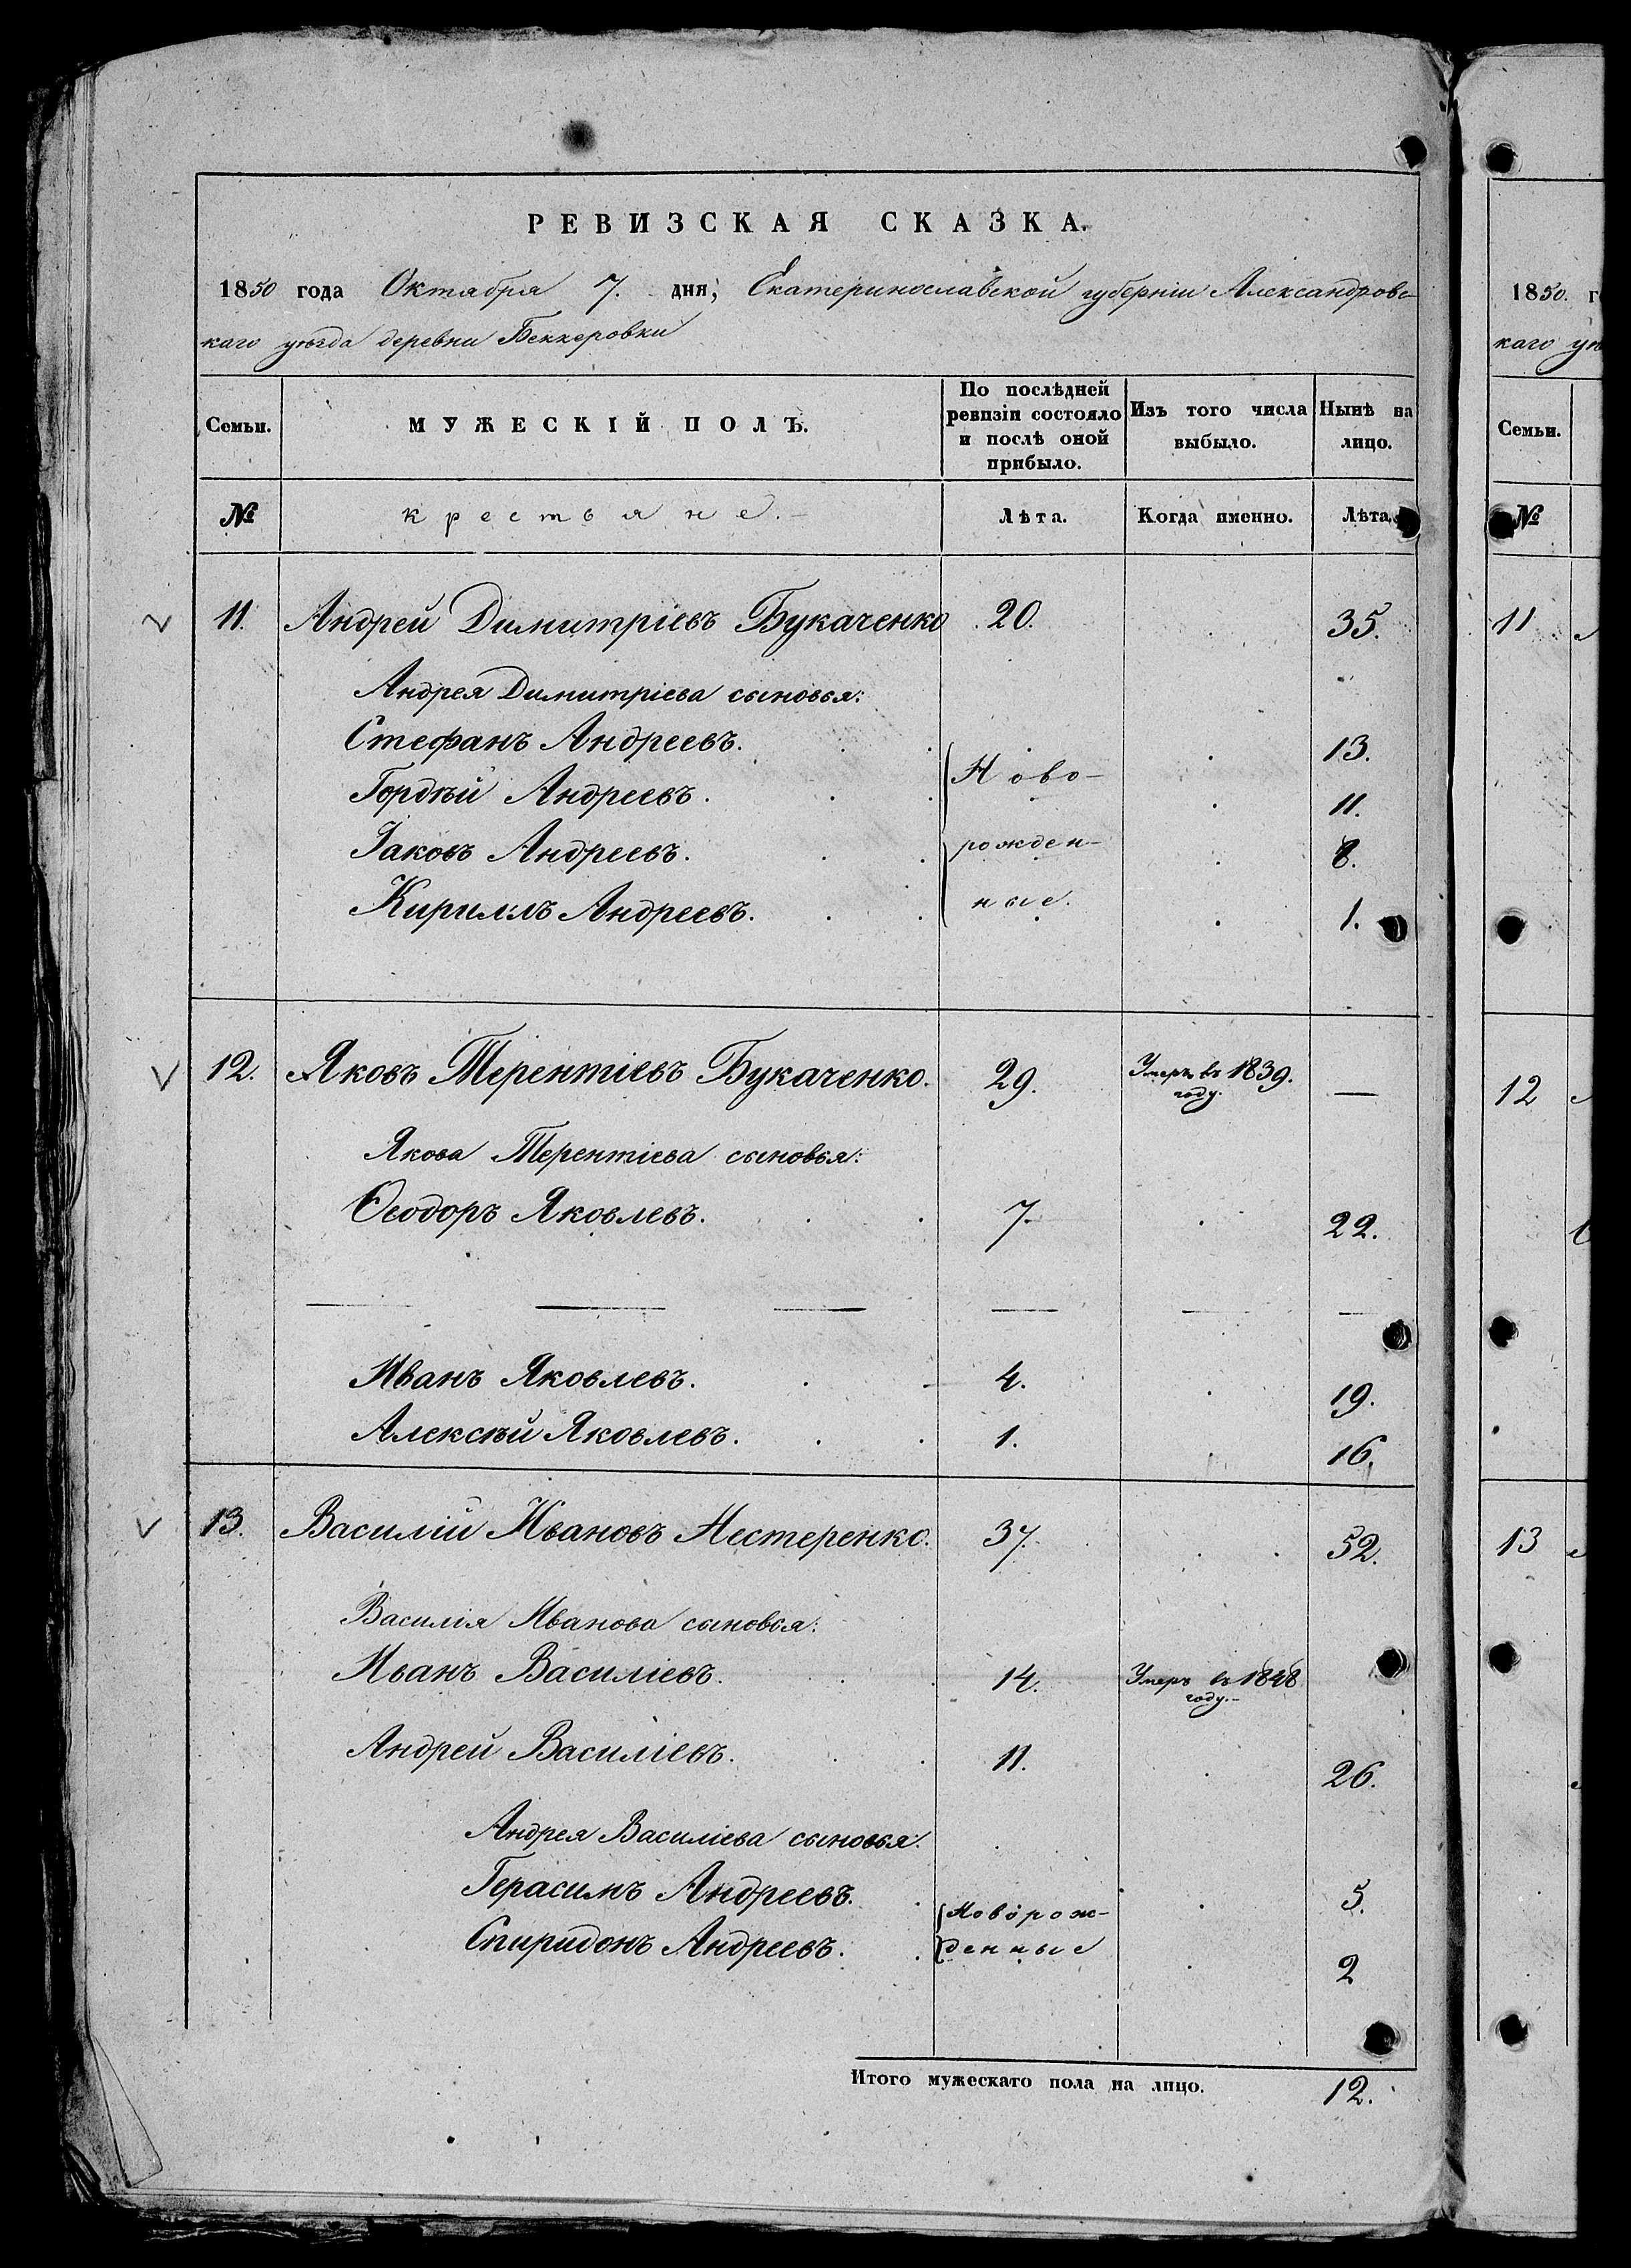 РЕВИЗСКАЯ СКАЗКА.
1850 года Октября 7. дня, Екатеринославской губерніи Александровс-
каго уѣзда деревни Беккеровки
Семьи.
МУЖЕСКІЙ ПОЛЪ.
По послѣдней ревизіи состояло и послѣ оной прибыло.
Изъ того числа выбыло.
Нынѣ на лицо.
№ крестьяне. Лѣта. Когда именно. Лѣта.
11. Андрей Димитріевъ Букаченко 20. 35.
Андрея Димитріева сыновья:
Стефанъ Андреевъ. 13.
Ново-
Гордѣй Андреевъ. 11.
рожден-
Іаковъ Андреевъ. 8.
ные.
Кириллъ Андреевъ. 1.
12. Яковъ Терентіевъ Букаченко. 29. Умеръ въ 1839. году. —
Якова Терентіева сыновья:
Ѳеодоръ Яковлевъ. 7. 22.
— — — — — —
Иванъ Яковлевъ. 4. 19.
Алексѣй Яковлевъ. 1. 16.
13. Василій Ивановъ Нестеренко. 37. 52.
Василія Иванова сыновья:
Иванъ Василіевъ. 14. Умеръ въ 1848 году.
Андрей Василіевъ. 11. 26.
Андрея Василіева сыновья:
Герасимъ Андреевъ. Новорож- 5.
Спиридонъ Андреевъ. денные 2
Итого мужескаго пола на лицо. 12.
1850. г
каго уѣ
Семьи.
№
11
12
13